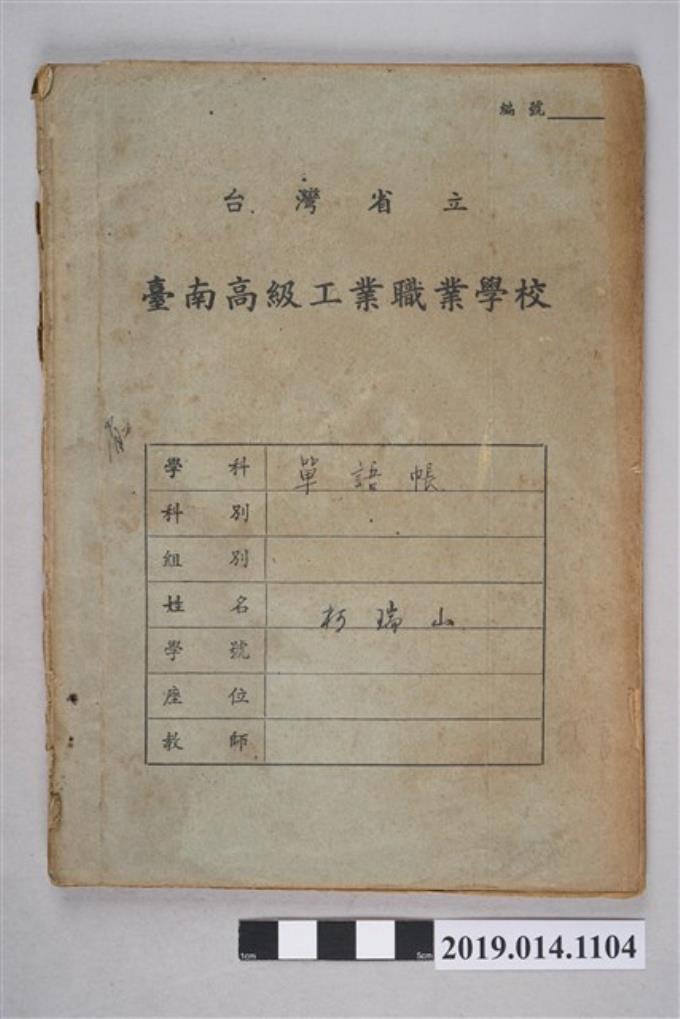 編號
台灣省立
臺南高級工業職業學校
學科 單語帳
科別
組別
姓名 柯瑞山
學號
座位
教師
1cm 5cm
2019.014.1104